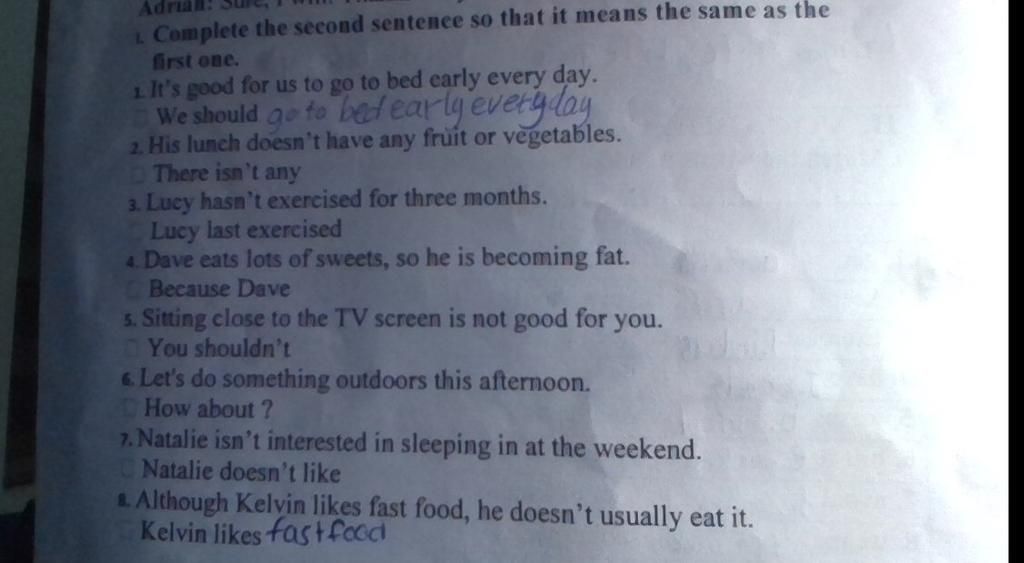 Adrian: Sure, I will.
1. Complete the second sentence so that it means the same as the
first one.
1. It's good for us to go to bed early every day.
We should go to bed early every day
2. His lunch doesn't have any fruit or vegetables.
There isn't any
3. Lucy hasn't exercised for three months.
Lucy last exercised
4. Dave eats lots of sweets, so he is becoming fat.
Because Dave
5. Sitting close to the TV screen is not good for you.
You shouldn't
6. Let's do something outdoors this afternoon.
How about ?
7. Natalie isn't interested in sleeping in at the weekend.
Natalie doesn't like
8. Although Kelvin likes fast food, he doesn't usually eat it.
Kelvin likes fast food